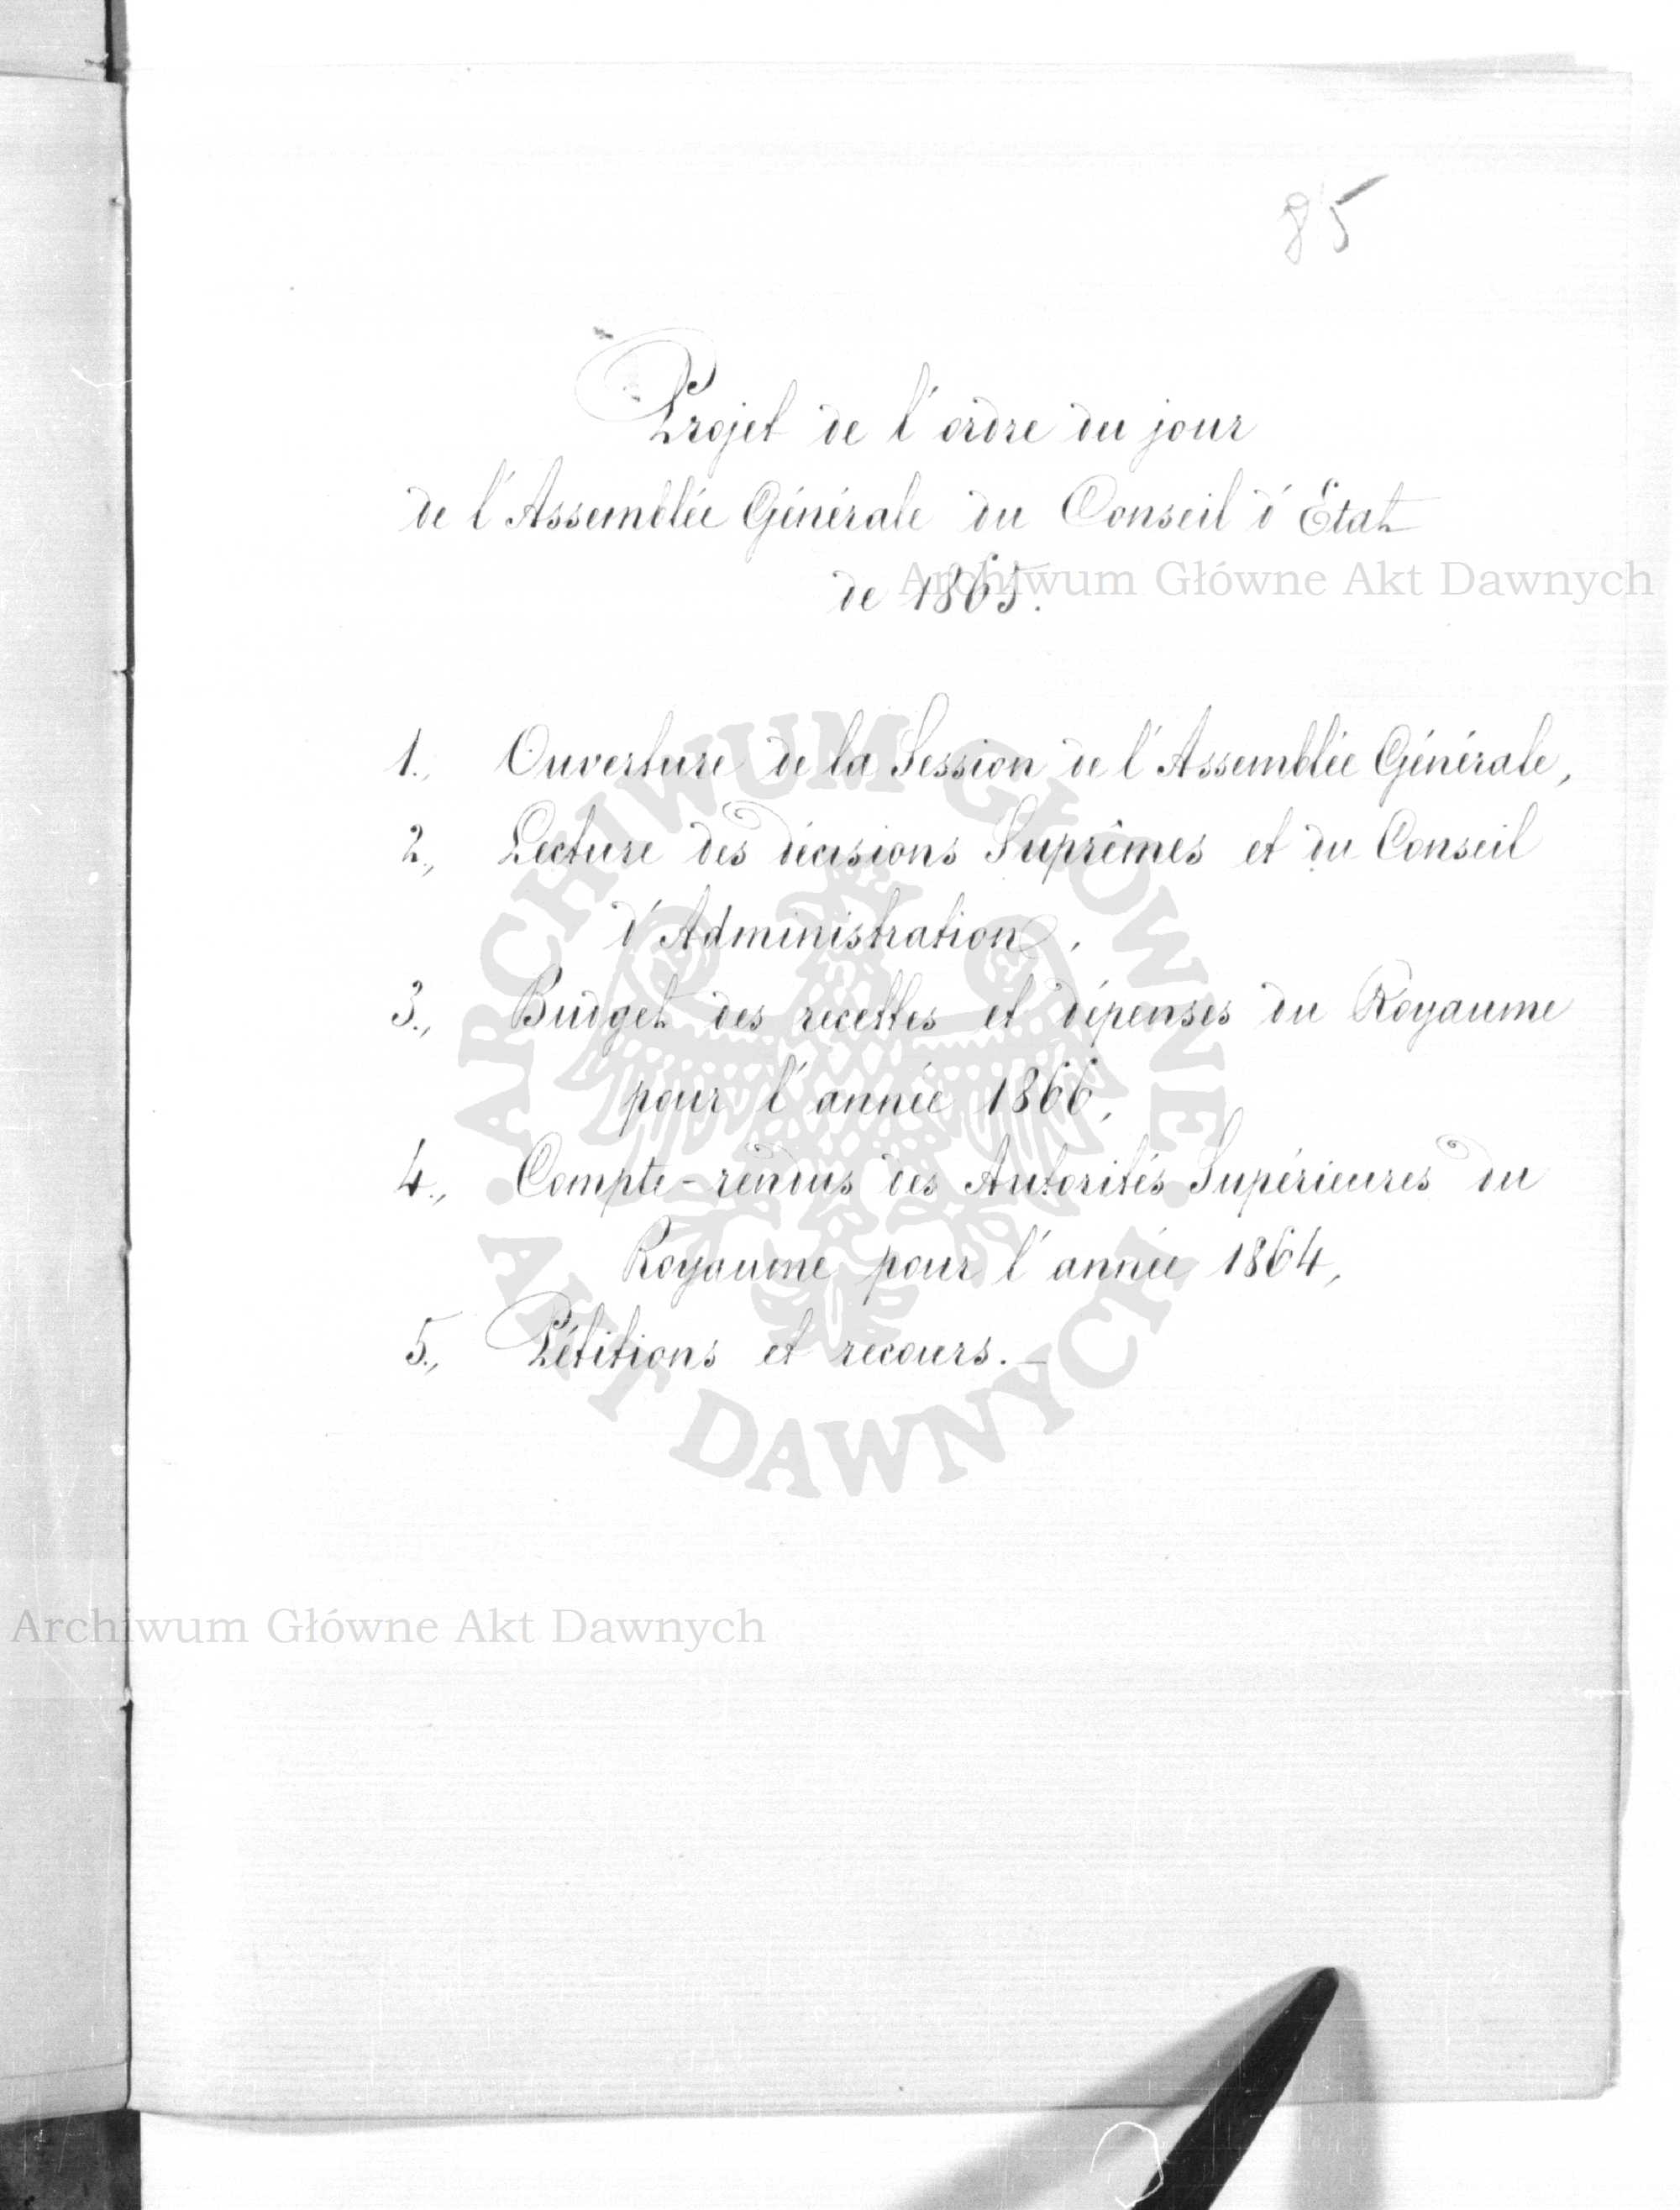 85
Projet de l'ordre du jour
de l'Assemblée Générale du Conseil d'Etat
de 1865.
Archiwum Główne Akt Dawnych
1., Ouverture de la Session de l'Assemblée Générale,
2., Lecture des décisions Suprêmes et du Conseil
d'Administration,
3., Budget des recettes et dépenses du Royaume
pour l'année 1866,
4., Compte-rendus des Autorités Supérieures du
Royaume pour l'année 1864,
5., Pétitions et recours.—
ARCHIWUM GŁÓWNE · AKT DAWNYCH ·
Archiwum Główne Akt Dawnych